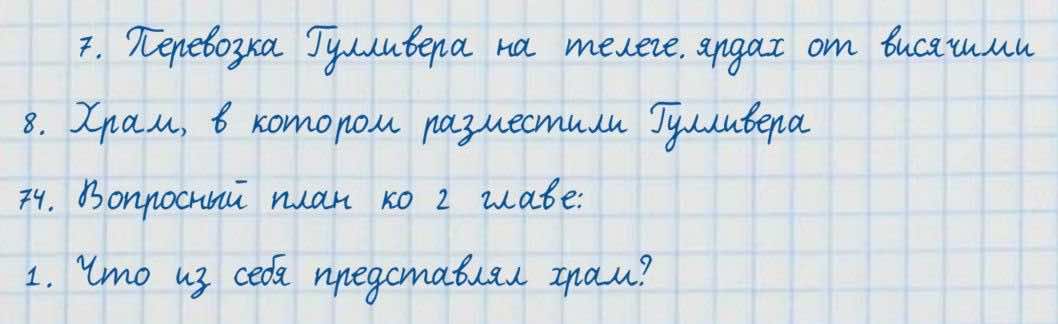 7. Перевозка Гулливера на телеге. ярдах от висячими
8. Храм, в котором разместили Гулливера
74. Вопросный план ко 2 главе:
1. Что из себя представлял храм?